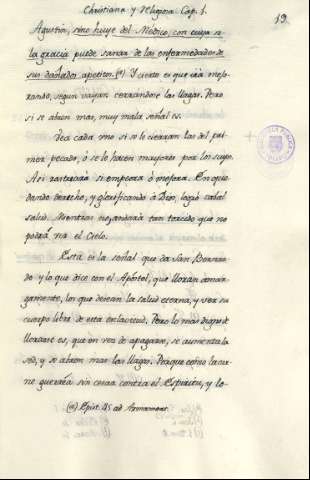 Christiana y Religiosa Cap. 1.
19.
Agustin, sino huye del Medico, con cuya so-
la gracia puede sanar de las enfermedades de
sus dañados apetitos. (a) Y cierto es que irà mejo-
rando, segun vayan cerrandose las llagas. Pero
si se abren mas, muy mala señal es.
Vea cada uno si se le cierran las del pri-
mer pecado, ò se le hacen mayores por los suyos.
Asi rastreara si empeora ò mejora. En que-
dando derecho, y glorificando à Dios, logrò cabal
salud. Mientras no, andarà tan torcido que no
podrà ver el Cielo.
Esta es la señal que da San Bernar-
do y lo que dice con el Apóstol, que lloran amar-
gamente, los que desean la salud eterna, y ver su
cuerpo libre de esta esclavitud. Pero lo mas digno de
llorarse es, que en vez de apagarse, se aumenta la
sed, y se abren mas las llagas. Porque como la car-
ne guerrèa sin cesar contra el Espiritu, y lo-
(a) Epist. 45 ad Armament.